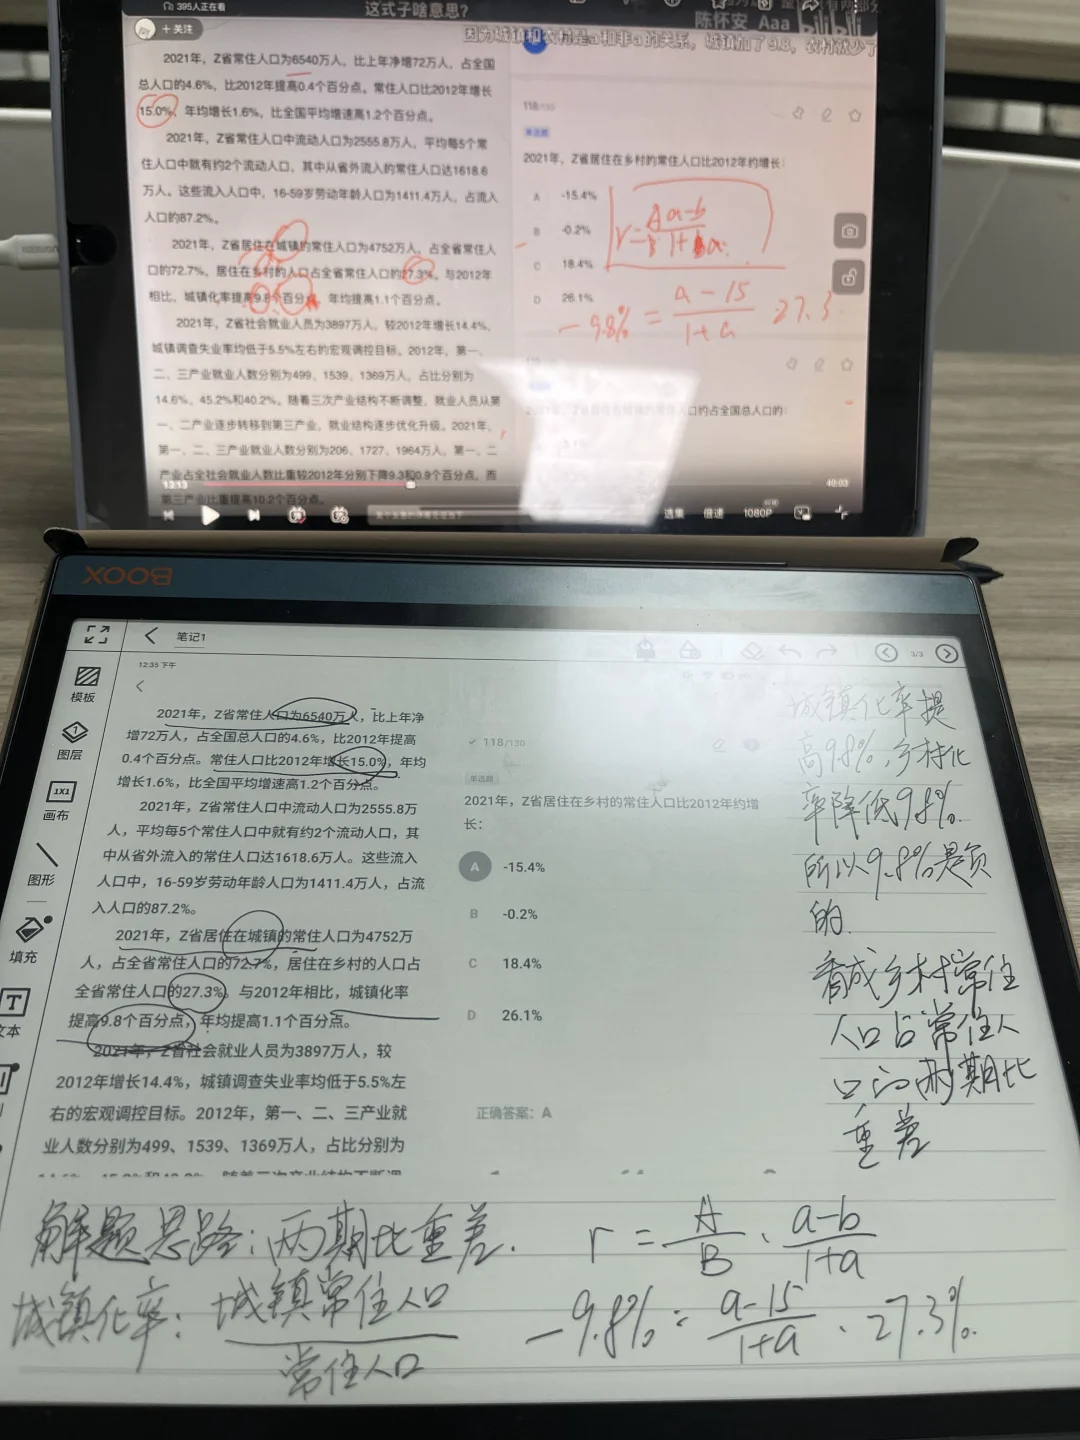 395人正在看
这式子啥意思?
+关注
陈怀安 Aaa bilibili
因为城镇和农村是a和非a的关系，城镇加了9.8，农村就少了
2021年，Z省常住人口为6540万人，比上年净增72万人，占全国
总人口的4.6%，比2012年提高0.4个百分点。常住人口比2012年增长
15.0%，年均增长1.6%，比全国平均增速高1.2个百分点。
2021年，Z省常住人口中流动人口为2555.8万人，平均每5个常
住人口中就有约2个流动人口，其中从省外流入的常住人口达1618.6
万人。这些流入人口中，16-59岁劳动年龄人口为1411.4万人，占流入
人口的87.2%。
2021年，Z省居住在城镇的常住人口为4752万人，占全省常住人
口的72.7%，居住在乡村的人口占全省常住人口的27.3%。与2012年
相比，城镇化率提高9.8个百分点，年均提高1.1个百分点。
2021年，Z省社会就业人员为3897万人，较2012年增长14.4%，
城镇调查失业率均低于5.5%左右的宏观调控目标。2012年，第一、
二、三产业就业人数分别为499、1539、1369万人，占比分别为
14.6%、45.2%和40.2%。随着三次产业结构不断调整，就业人员从第
一、二产业逐步转移到第三产业，就业结构逐步优化升级。2021年，
第一、二、三产业就业人数分别为206、1727、1964万人，第一、二
产业占全社会就业人数比重较2012年分别下降9.3和0.9个百分点，而
第三产业比重提高10.2个百分点。
118/130
单选题
2021年，Z省居住在乡村的常住人口比2012年约增长：
A -15.4%
B -0.2%
C 18.4%
D 26.1%
r = A/B a-b/1+a
-9.8% = a-15/1+a 27.3
119
2021年，Z省居住在城镇的常住人口约占全国总人口的：
13:13
40:03
选集 倍速 1080P
BOOX
笔记1
3/3
12:35 下午
模板
图层
1X1
画布
图形
填充
T
文本
2021年，Z省常住人口为6540万人，比上年净
增72万人，占全国总人口的4.6%，比2012年提高
0.4个百分点。常住人口比2012年增长15.0%，年均
增长1.6%，比全国平均增速高1.2个百分点。
2021年，Z省常住人口中流动人口为2555.8万
人，平均每5个常住人口中就有约2个流动人口，其
中从省外流入的常住人口达1618.6万人。这些流入
人口中，16-59岁劳动年龄人口为1411.4万人，占流
入人口的87.2%。
2021年，Z省居住在城镇的常住人口为4752万
人，占全省常住人口的72.7%，居住在乡村的人口占
全省常住人口的27.3%。与2012年相比，城镇化率
提高9.8个百分点，年均提高1.1个百分点。
2021年，Z省社会就业人员为3897万人，较
2012年增长14.4%，城镇调查失业率均低于5.5%左
右的宏观调控目标。2012年，第一、二、三产业就
业人数分别为499、1539、1369万人，占比分别为
118/130
单选题
2021年，Z省居住在乡村的常住人口比2012年约增
长：
A -15.4%
B -0.2%
C 18.4%
D 26.1%
正确答案：A
城镇化率提
高9.8%，乡村化
率降低9.8%.
所以9.8%是负
的.
看成乡村常住
人口占常住人
口的两期比
重差
解题思路：两期比重差.
r = A/B · a-b/1+a
城镇化率：城镇常住人口/常住人口
-9.8% = a-15/1+a · 27.3%.